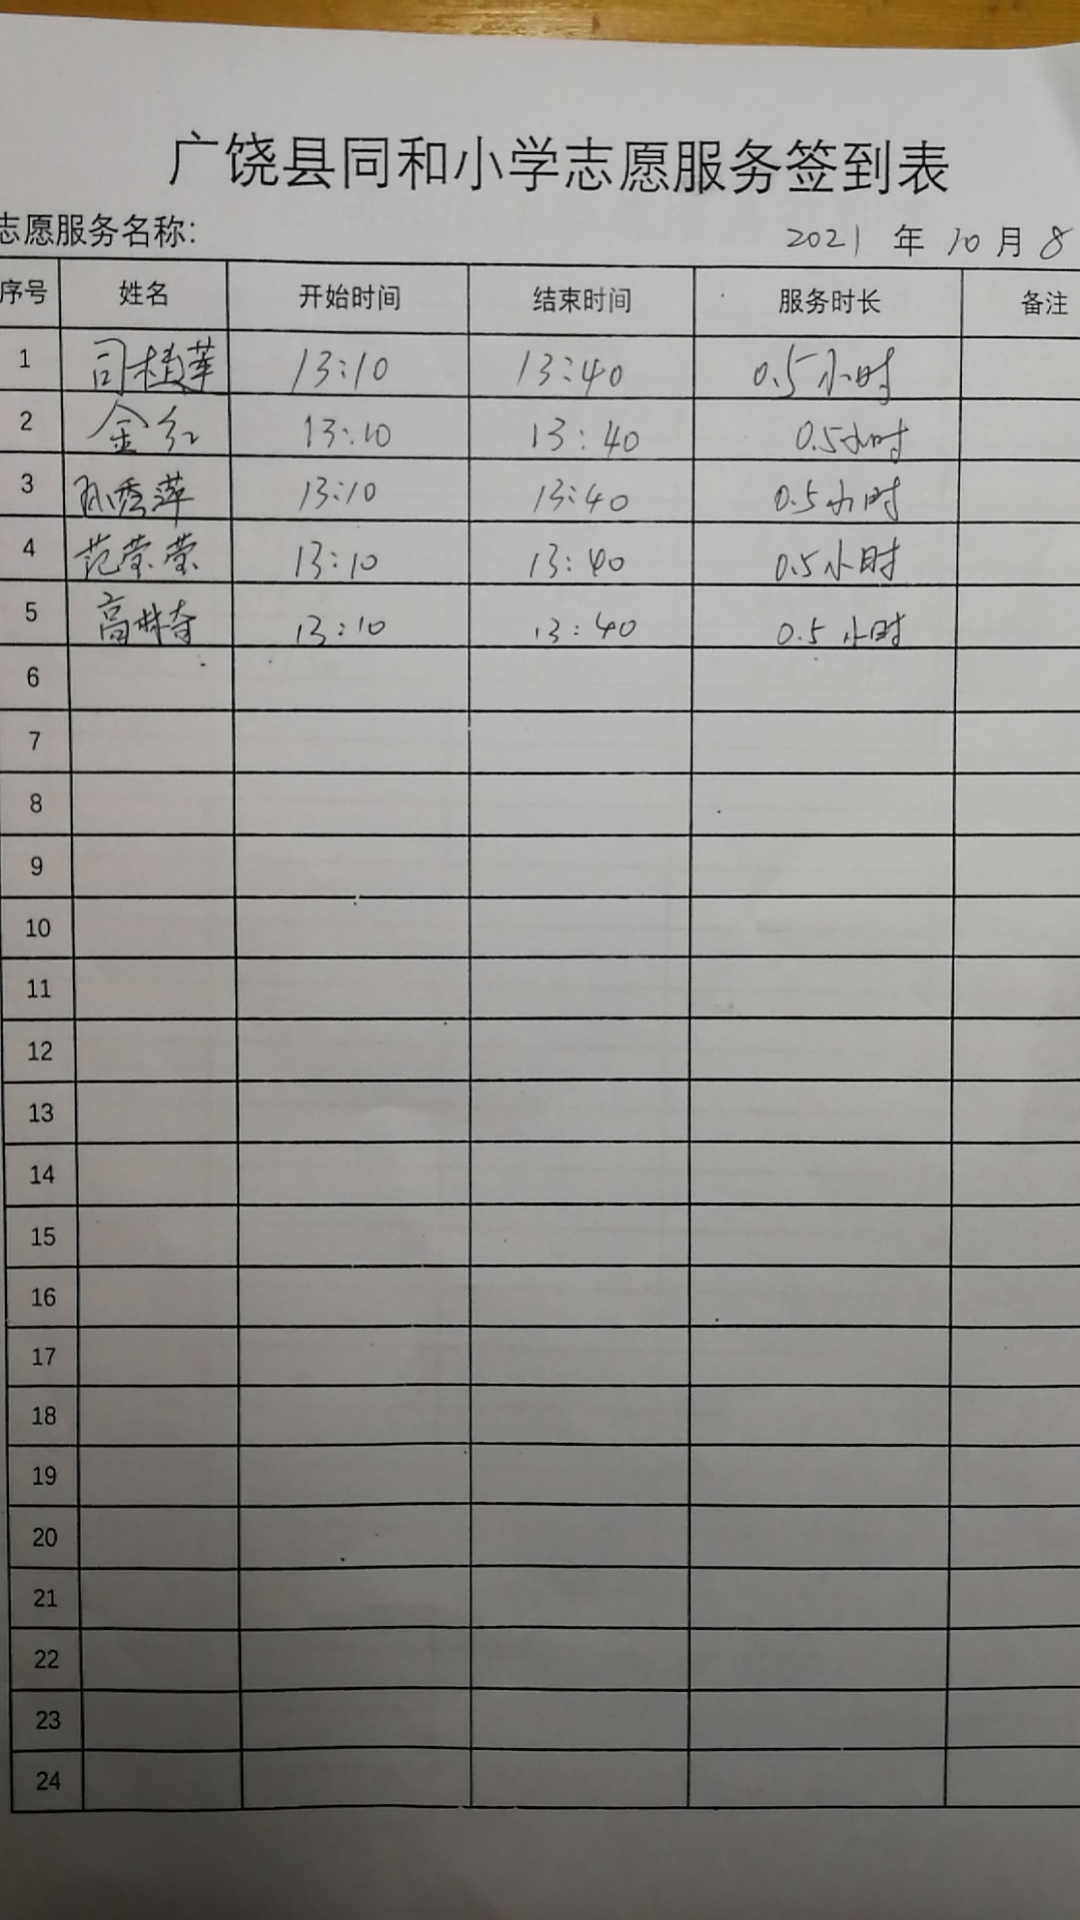 广饶县同和小学志愿服务签到表
志愿服务名称:
2021 年 10 月 8
序号 姓名 开始时间 结束时间 服务时长 备注
1 司桂苹 13:10 13:40 0.5小时
2 金红 13:10 13:40 0.5小时
3 孙秀萍 13:10 13:40 0.5小时
4 范莹莹 13:10 13:40 0.5小时
5 高 13:10 13:40 0.5小时
6
7
8
9
10
11
12
13
14
15
16
17
18
19
20
21
22
23
24